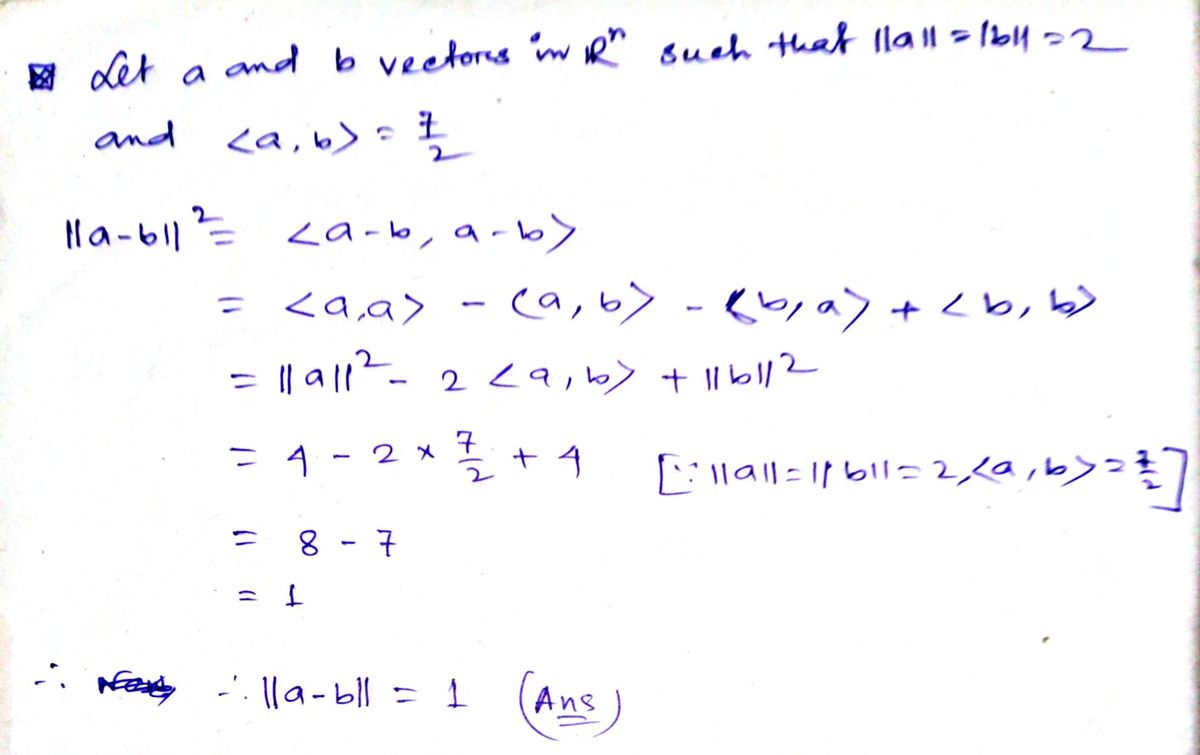 Let a and b vectors in ℝⁿ such that ||a|| = ||b|| = 2
and <a, b> = 7/2
||a-b||² = <a-b, a-b>
= <a,a> - <a, b> - <b, a> + <b, b>
= ||a||² - 2 <a, b> + ||b||²
= 4 - 2 × 7/2 + 4 [∵ ||a|| = ||b|| = 2, <a, b> = 7/2]
= 8 - 7
= 1
∴ ∴ ||a-b|| = 1 (Ans)